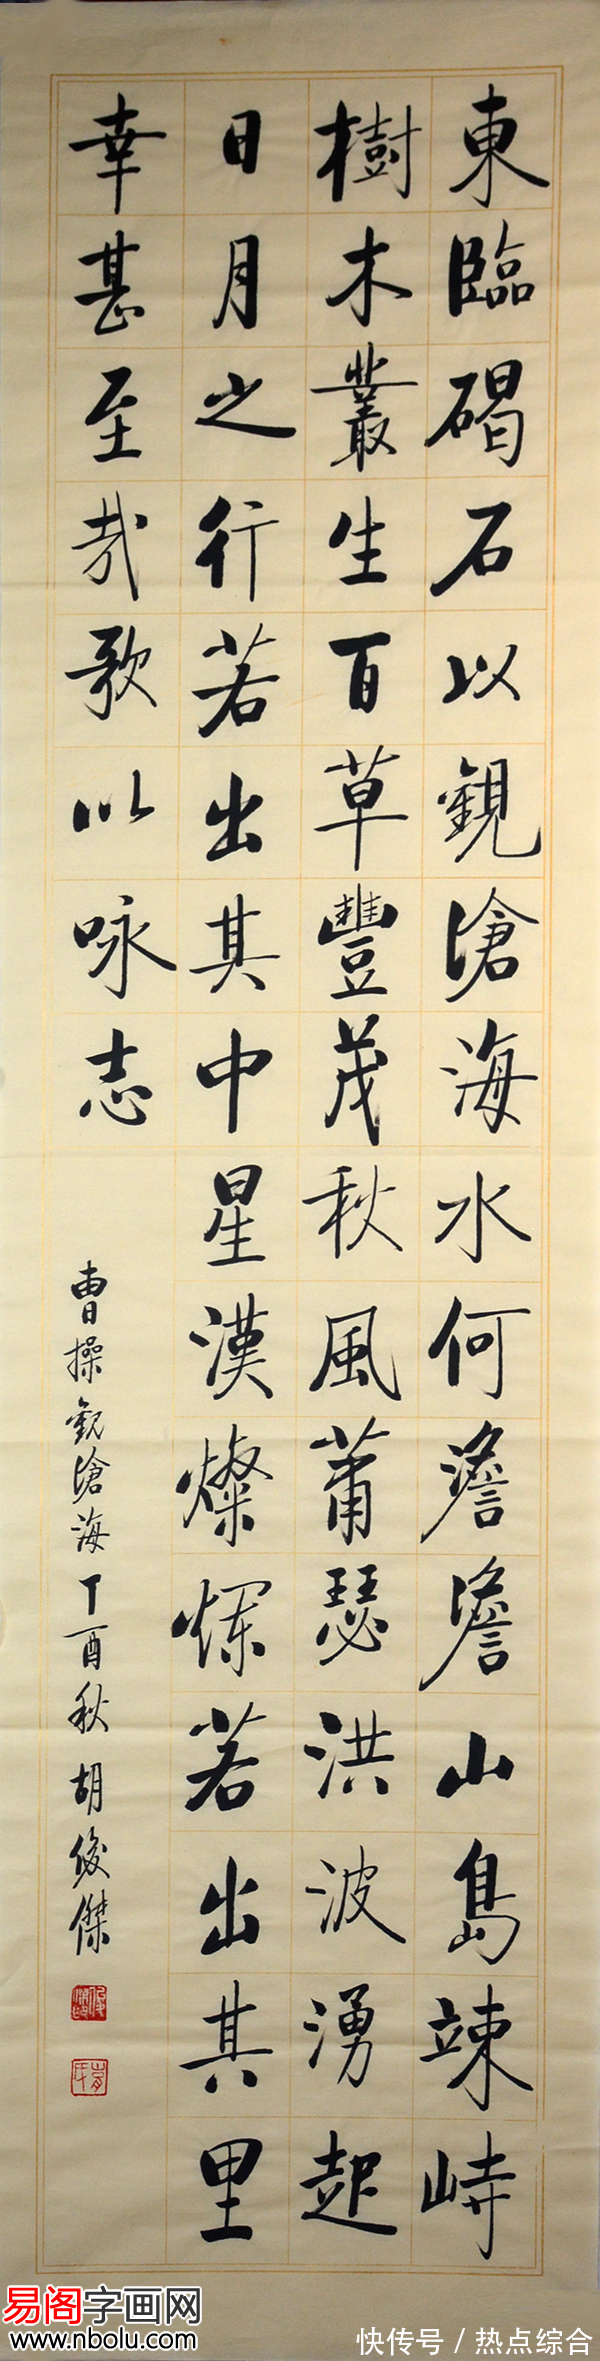 東臨碣石以觀滄海水何澹澹山島竦峙
樹木叢生百草豐茂秋風蕭瑟洪波湧起
日月之行若出其中星漢燦爛若出其里
幸甚至哉歌以咏志
曹操觀滄海丁酉秋胡俊傑
易阁字画网
www.nbolu.com
快传号/热点综合